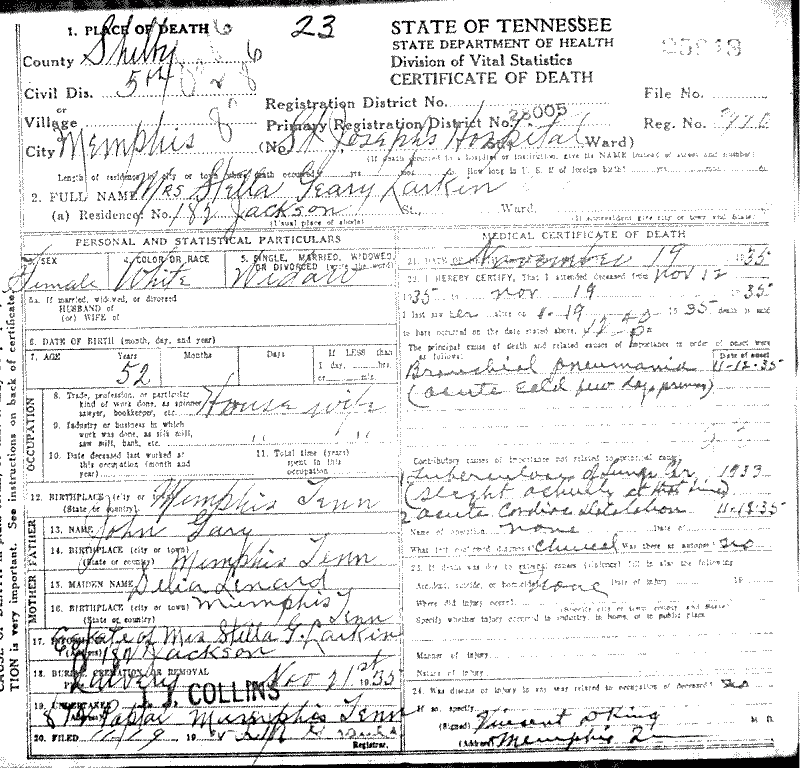 1. PLACE OF DEATH
23
STATE OF TENNESSEE
STATE DEPARTMENT OF HEALTH
Division of Vital Statistics
CERTIFICATE OF DEATH
County Shelby
Civil Dis. 5th
or
Village
City Memphis
Registration District No.
Primary Registration District No. 28005
(No. St Joseph's Hospital Ward)
File No.
Reg. No.
Length of residence in city or town where death occurred yrs. mos. How long in U. S. if of foreign birth? yrs.
2. FULL NAME Mrs Stella Geary Larkin
(a) Residence: No. 182 Jackson St., Ward.
(Usual place of abode) (If nonresident give city or town and State)
PERSONAL AND STATISTICAL PARTICULARS
3. SEX 4. COLOR OR RACE 5. SINGLE, MARRIED, WIDOWED, OR DIVORCED (write the word)
Female White Widow
5a. If married, widowed, or divorced
HUSBAND of
(or) WIFE of
6. DATE OF BIRTH (month, day, and year)
7. AGE Years Months Days If LESS than
1 day, hrs.
or min.
52
OCCUPATION
8. Trade, profession, or particular
kind of work done, as spinner,
sawyer, bookkeeper, etc. House wife
9. Industry or business in which
work was done, as silk mill,
saw mill, bank, etc. " "
10. Date deceased last worked at
this occupation (month and
year)
11. Total time (years)
spent in this
occupation
12. BIRTHPLACE (city or town) Memphis Tenn
(State or country)
FATHER
13. NAME John Gary
14. BIRTHPLACE (city or town) Memphis Tenn
(State or country)
MOTHER
15. MAIDEN NAME Delia Linard
16. BIRTHPLACE (city or town) Memphis
(State or country) Tenn
17. Estate of Mrs Stella G. Larkin
(Address) 182 Jackson
18. BURIAL, CREMATION OR REMOVAL
Calvery Nov 21st 1935
19. UNDERTAKER J.T. COLLINS
(Address) Poplar Memphis Tenn
20. FILED 11/19 19
Registrar.
MEDICAL CERTIFICATE OF DEATH
21. DATE OF DEATH November 19 1935
22. I HEREBY CERTIFY, That I attended deceased from Nov 12
1935 to Nov 19 1935
I last saw her alive on 11-19 1935 death is said
to have occurred on the date stated above,
The principal cause of death and related causes of importance in order of onset were
as follows: Date of onset
Bronchial pneumonia 11-12-35
(acute cold few days previous)
Contributory causes of importance not related to principal cause:
1 Tuberculosis of lungs 1933
(Slight activity at that time)
2 acute Cardiac Dilatation 11-18-35
Name of operation none Date of
What test confirmed diagnosis? Clinical Was there an autopsy? no
23. If death was due to external causes (violence) fill in also the following:
Accident, suicide, or homicide? None Date of injury 19
Where did injury occur?
(Specify city or town, county, and State)
Specify whether injury occurred in industry, in home, or in public place.
Manner of injury
Nature of injury
24. Was disease or injury in any way related to occupation of deceased? no
If so, specify
(Signed) Vincent D King M. D.
(Address) Memphis
TION is very important. See instructions on back of certificate.